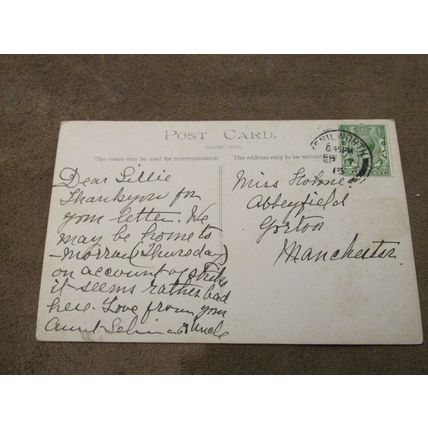 POST CARD.
This space may be used for communication
The address only to be written
KENILWORTH
6.45 PM
Dear Lillie
Thankyou for
your letter. We
may be home to
-morrow (Thursday)
on account of strike
it seems rather bad
here. Love from your
Aunt Selina & Uncle
Miss Holmes
Abbeyfield
Gorton
Manchester.